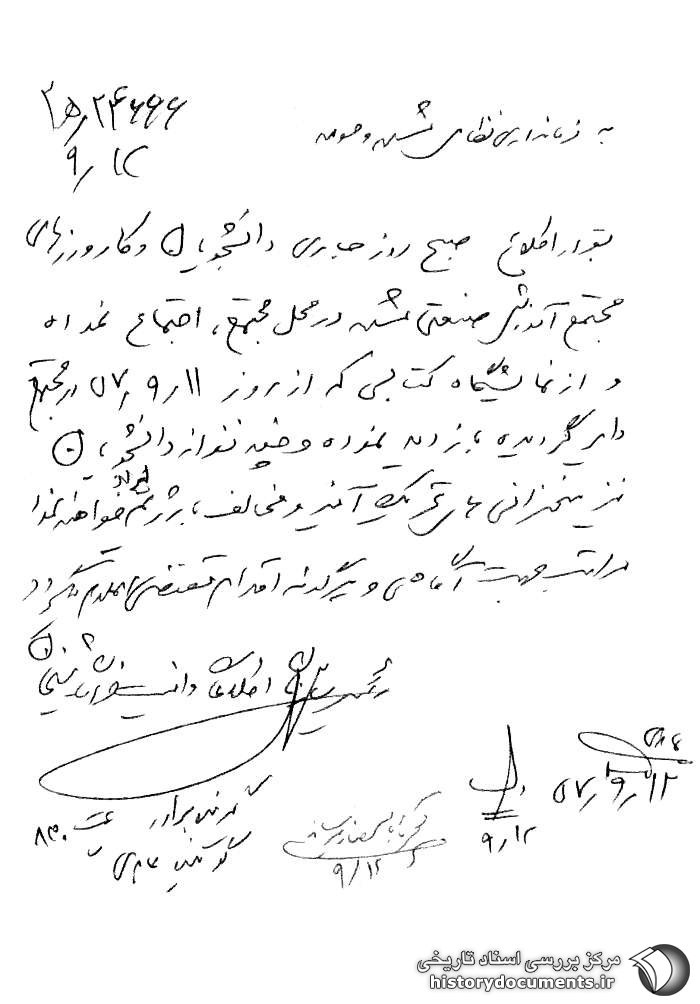 ۲ه‍/۲۴۶۹۶
۹/۱۲
به فرمانداری نظامی مشهد و حومه
بقرار اطلاع صبح روز جاری دانشجویان و کارورزهای
مجتمع آموزش صنعتی مشهد در محل مجتمع، اجتماع نموده
و از نمایشگاه کتابی که از روز ۵۷/۹/۱۱ در مجتمع
دایر گردیده بازدید نموده و چند نفر از دانشجویان
نیز سخنرانی های تحریک آمیز و مخالف با رژیم خواهند نمود
مراتب جهت آگاهی و هرگونه اقدام مقتضی اعلام میگردد
رئیس سازمان اطلاعات و امنیت خراسان
گیرنده
گوینده
ساعت ۸۳۰
۹/۱۲
۹/۱۲
۵۷/۹/۱۲
مرکز بررسی اسناد تاریخی
historydocuments.ir